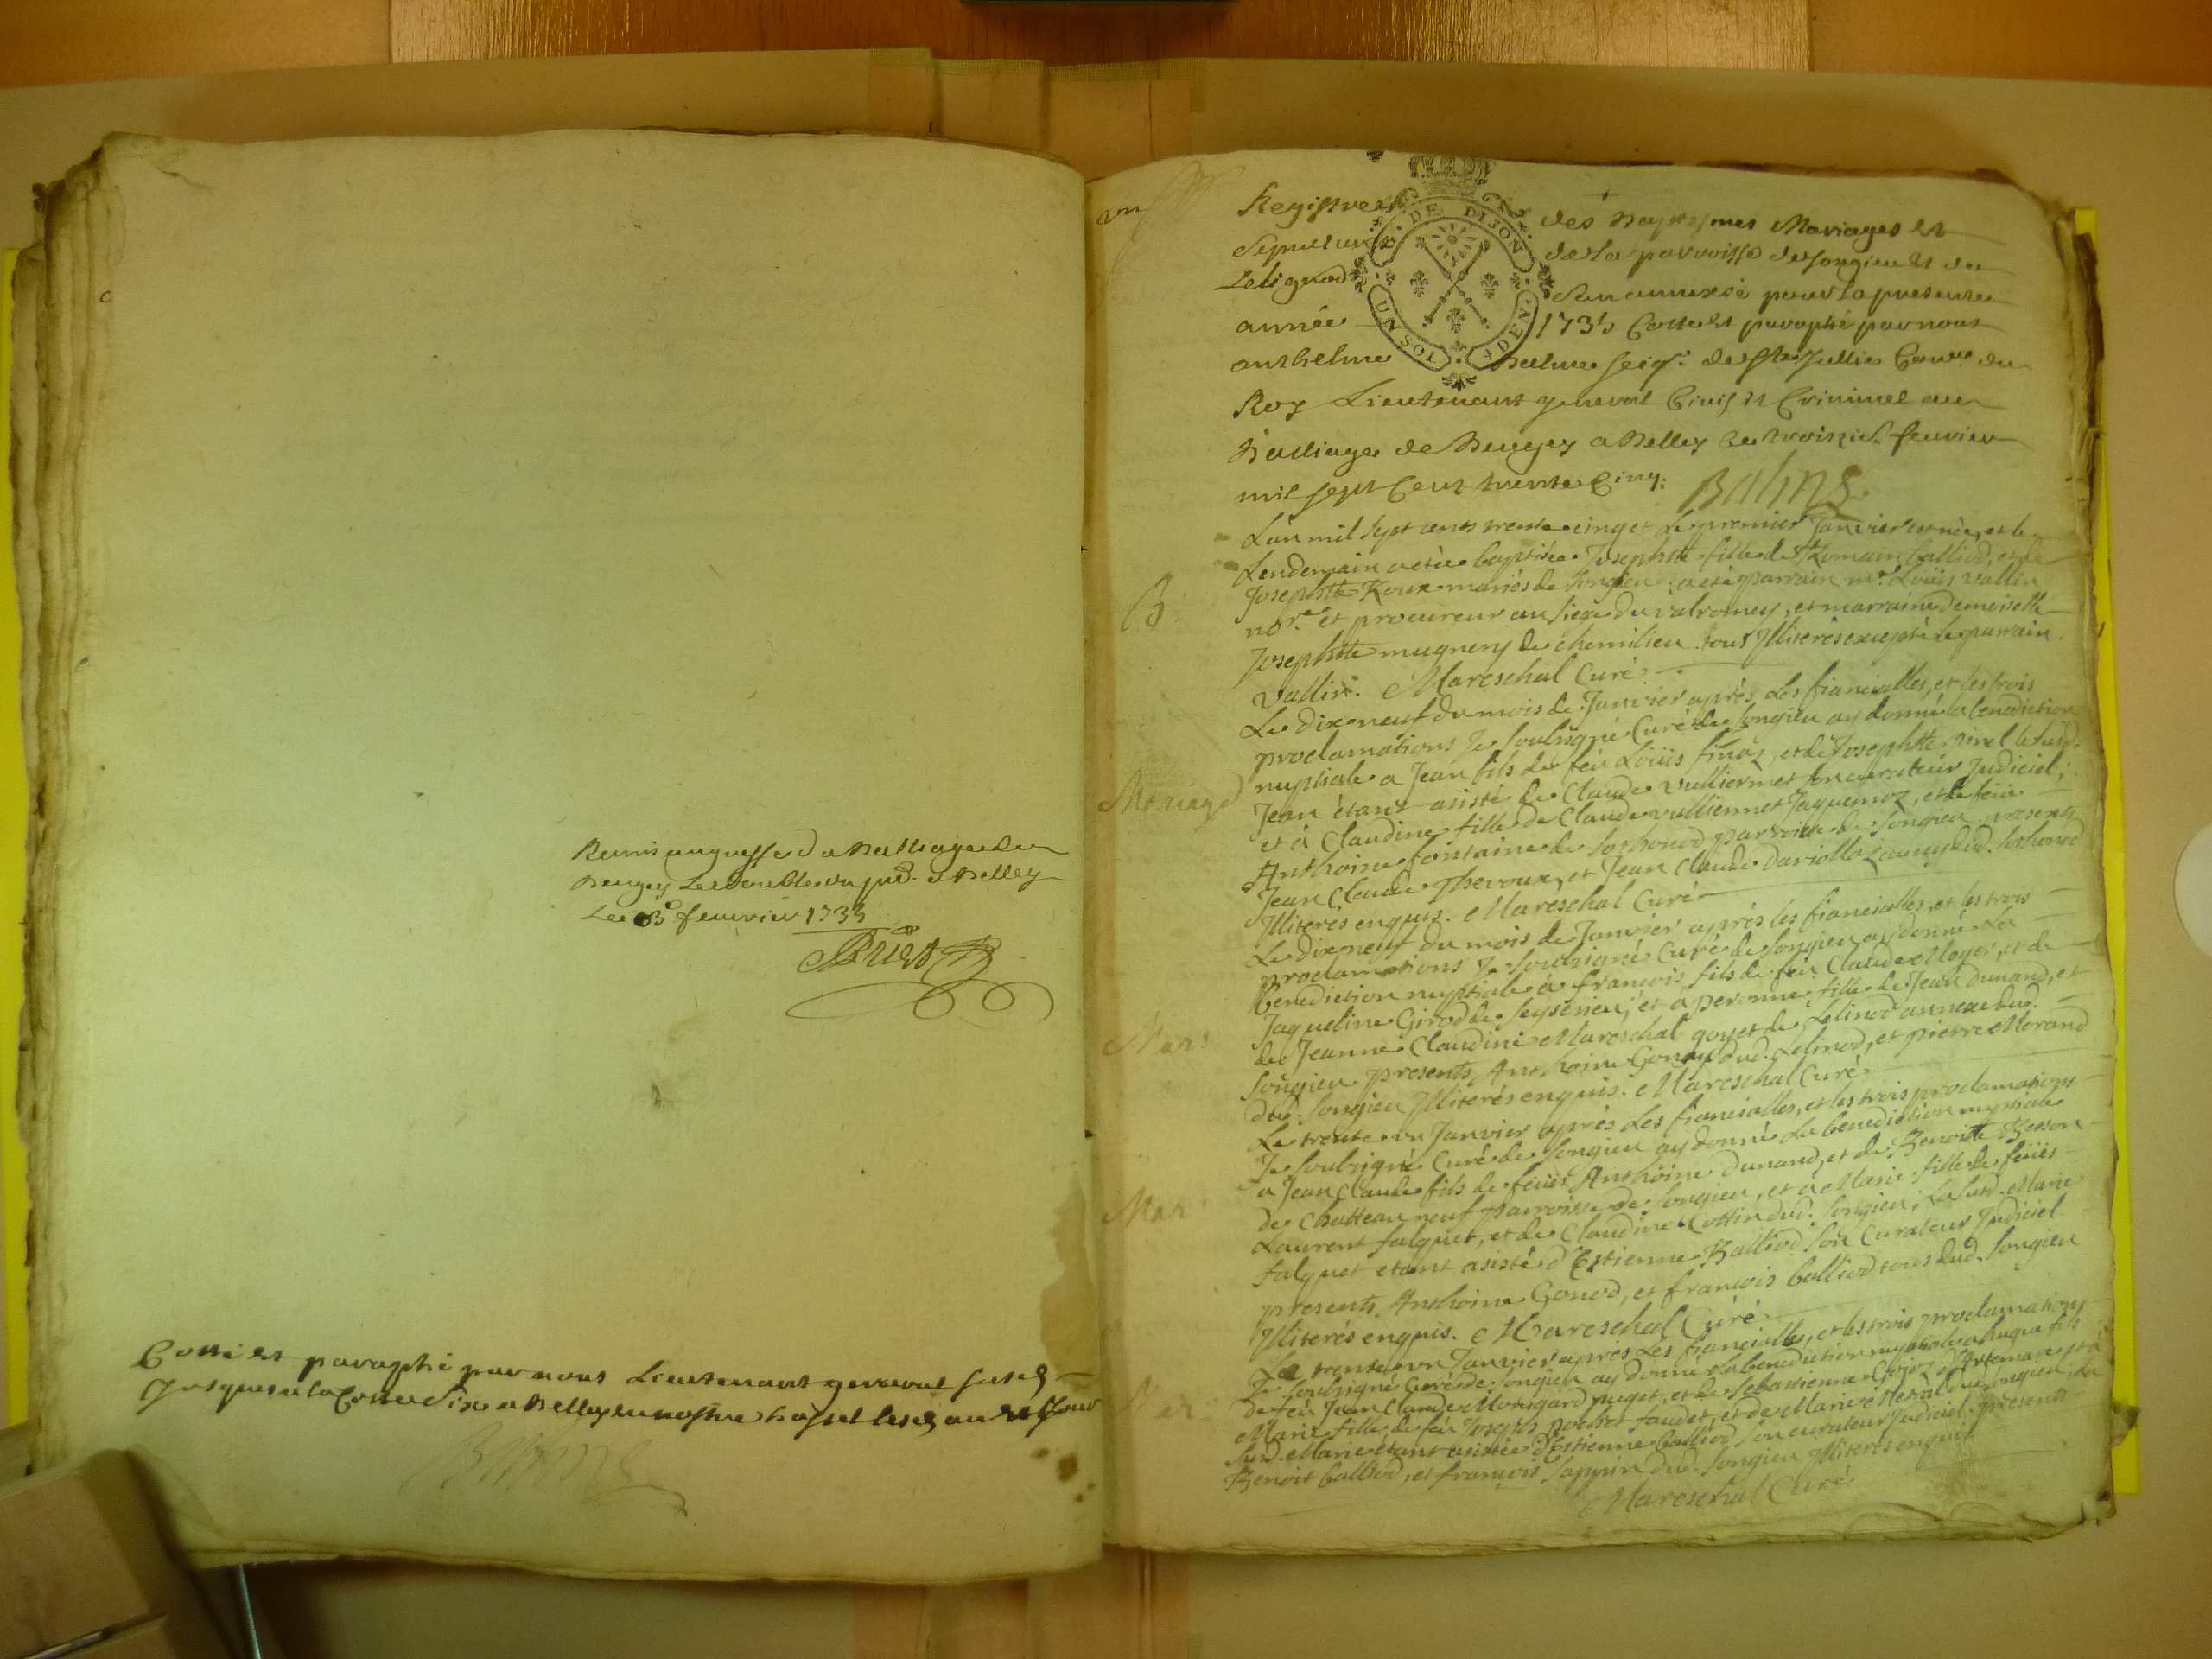 Remis au greffe du Balliage de
Beugey Le double du pnt. a Belley
Le 3e feuvrier 1735
Cotté et paraphé par nous Lieutenant general susd
Jusques a la Cotte dix a Belley en nostre hostel lesd an et Jour
un
Registre des Baptesmes Mariages et
Sepultures de la parroisse de Songieu et de
Lelignod son annexe pour la presente
année 1735 Cotté et paraphé par nous
anthelme Balme Seigr. de Ste Jullie Coner. du
Roy Lieutenant general Civil et Criminel au
Balliage de Beugey a Belley le troizie. feuvrier
mil sept Cent trente Cinq: Balme
DE DIJON
UN SOL 4 DEN.
B
L'an mil sept cents trente cinq et le premier Janvier est née, et le
Lendemain a été baptisée Josephtte fille de Romain balliod, et de
Josephtte Roux mariés de Songieu a été parrain mr. Loüis vallin
nore. et procureur au siege du valromey, et marraine Demoiselle
Josephtte mugnery de chemilieu tous Illiterés excepté le parrain
vallin. Mareschal Curé
Mariage
Le dix neuf du mois de Janvier après Les fiancialles, et les trois
proclamations Je Soubsigné Curé de Songieu ay donné la benediction
nuptiale a Jean fils de feu Loüis finaz, et de Josephtte pinel le susd.
Jean étant asisté de Claude vulliermet son curateur Judiciel;
et à Claudine fille de Claude vulliermet Jaquemoz, et de feüe
Anthoine fontaine de Sothonod parroisse de Songieu, presents
Jean Claude Thevoux, et Jean Claude dariollaz dud. Sothonod
Illiterés enquis. Mareschal Curé
Mar:
Le dix neuf du mois de Janvier après les fiancialles, et les trois
proclamations Je Soubsigné Curé de Songieu ay donné La
benediction nuptiale à francois fils de feu Claude Moyer, et de
Jaqueline Girod de Seyserieu; et a peronne fille de Jean Dunand, et
de Jeanne Claudine Mareschal goyet de Lelinod annexe dud.
Songieu presents Anthoine Gonay dud. Lelinod, et pierre Morand
dud. Songieu Illiterés enquis. Mareschal Curé
Mar
Le trente un Janvier après Les fiancialles, et les trois proclamations
Je Soubsigné Curé de Songieu ay donné La benediction nuptiale
a Jean Claude fils de feües Anthoine Dunand, et de Benoitte Besson
de Chatteau neuf parroisse de Songieu, et à Marie fille de feües
Laurent falquet, et de Claudine Cottin dud. Songieu; La Susd. Marie
falquet etant asisté d'Estienne Balliod Son Curateur Judiciel
presents Anthoine Gonod, et francois balliod tous dud. Songieu
Illiterés enquis. Mareschal Curé
Mar
Le trente un Janvier après Les fiancialles, et les trois proclamations
Je Soubsigné Curé de Songieu ay donné La benediction nuptiale a hugue fils
de feu Jean Claude Mongard puget, et de Sebastienne d'Artemare, et à
Marie fille de feu Joseph pochet faudet, et de Marie Meral dud Songieu, La
Susd. Marie étant asistée d'Estienne balliod Son curateur Judiciel presents
Benoit balliod, et francois Sappin dud. Songieu Illiterés enquis
Mareschal Curé